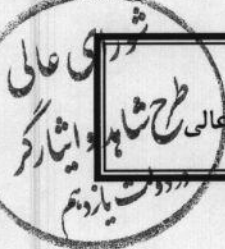 شورای عالی
طرح شاهد و ایثارگر
در دولت یازدهم
عالی